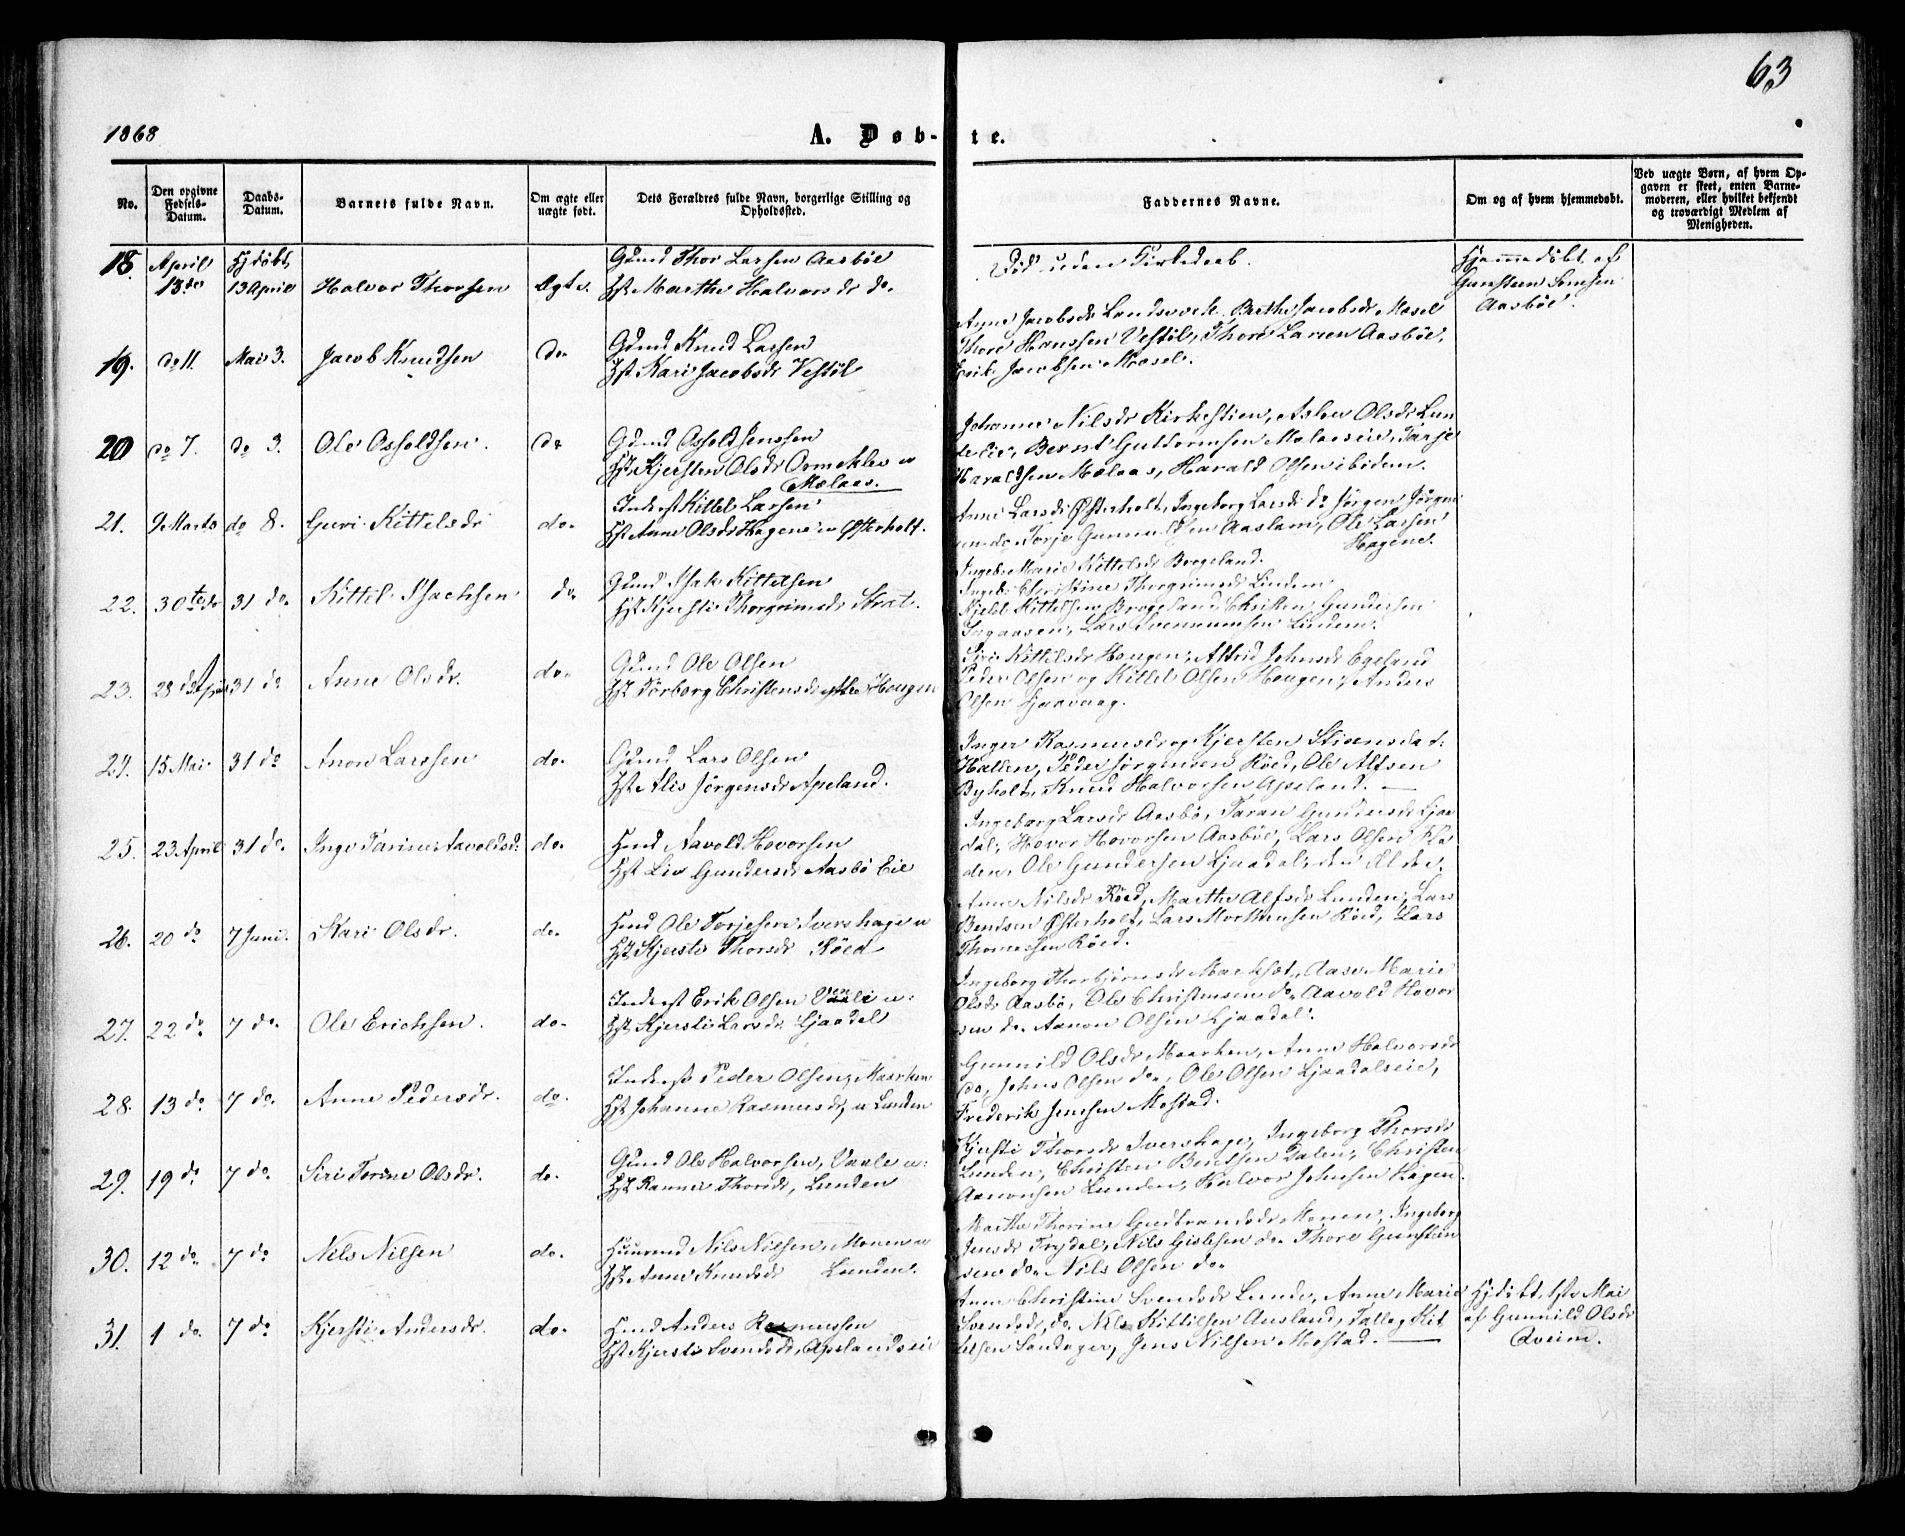 63
1868
A. Døb-te.
No.
Den opgivne Fødsels-Datum.
Daabs-Datum.
Barnets fulde Navn.
Om ægte eller uægte født.
Dets Forældres fulde Navn, borgerlige Stilling og Opholdsted.
Faddernes Navne.
Om og af hvem hjemmedøbt.
Ved uægte Børn, af hvem Opgaven er skeet, enten Barnemoderen, eller hvilket bekjendt og troværdigt Medlem af Menigheden.
18. April 13de Hjdøbt 13 April Halvor Thorsen Ægte.
Gmd Thor Larsen Aasbøe
Hst Marthe Halvorsdr do.
Død uden Kirkedaab.
Hjemmedøbt af
Gunsteen
Aasbøe.
19. do 11. Mai 3. Jacob Knudsen do
Gmd Knud Larsen
Hst Kari Jacobsdr Vestøl
Anne Jacobsdr Landsverk. Berthe Jacobsdr Mosel
Thore Hanssen Vestøl, Thore Larsen Aasbøe,
Erik Jacobsen Moesel.
20 do 7. do 3. Ole Osfoldsen. do
Gmd Osfold Jenssen
Hst Kjersten Olsdr Ormeklev
Molaas.
Johanne Nilsdr Kirkestien, Aslou Olsdr Lun
Bernt Guttormsen Molaaseie, Tarje
Haraldsen Molaas, Harald Olsen ibidem.
21. 9 Marts do 8. Guri Kittelsdr do.
Inderst Kittel Larsen
Hst Anne Olsdr Hagene Østerholt.
Anne Larsdr Østerholt, Ingeborg Larsdr do Jørgen Jørgen
sen do. Torje Aasland, Ole Larsen
Hagene.
22. 30te do 31 do. Kittel Isachsen do
Gmd Isak Kittelsen
Hst Kjersti Thorgrimsdr
Ingeb. Marie Kittelsdr Brogeland.
Ingeb. Christine Thorgrimsdr Lindem
Kittelsen Brogeland, Christen Gundersen
Lars Lindem.
23. 28 do April 31 do Anne Olsdr. do.
Gmd Ole Olsen
Hst Torborg Christensdr Hougen
Siri Kittelsdr Hougen, Astrid Johnsdr Egeland
Peder Olsen og Kittel Olsen Hougen, Anders
Olsen
24. 15 Mai 31 do Anon Larssen do.
Gmd Lars Olsen
Hst Alis Jørgensdr Apeland.
Inger Rasmusdr og Kjersten
Hallen, Peder Jørgensen Røed, Ole Alfsen
Byholt, Knud Halvorsen Apeland.
25. 23 April 31 do. Inge Tarine Aavoldsd. do.
Hmd Aavold Hovorsen
Hst Liv Gundersdr Aasbø Eie
Ingeborg Larsdr Aasbø, Taran Gundersdr Ljaa
dal, Hovor Hovorsen Aasbøe, Lars Olsen
den, Ole Gundersen Ljaadal,
26. 20 do 7 Juni. Kari Olsdr. do.
Hmd Ole Torjesen Ivershage
Hst Kjersti Thorsdr Røed
Anne Nilsdr Røed, Marthe Alfsdr Lunden, Lars
Bendsen Østerholt, Lars Mortensen Røed, Lars
Thomassen Røed.
27. 22 do 7 do. Ole Erichsen. do.
Inderst Erik Olsen
Hst Kjersti Larsdr Ljaadal
Ingeborg Thorbjørnsdr Aase Marie
Olsdr Aasbø, Ole Christensen do. Aavold Hovor
sen do. Aanon Olsen Ljaadal.
28. 13 do 7 do. Anne Pedersdr. do.
Inderst Peder Olsen, Maarken
Hst Johanne Rasmusdr, Lunden
Gunnild Olsdr Maarken, Anne Halvorsdr
do, Johns Olsen do., Ole Olsen Ljaadalseie,
Frederik Jensen Mostad.
29. 19 do 7 do. Siri Torine Olsdr. do.
Gmd Ole Halvorsen, Vaale
Hst Thorsdr, Lunden
Kjersti Thorsdr Ivershage, Ingeborg Thorsdr
Lunden, Christen Bentsen Dalen, Christen
Aanonsen Lunden, Halvor Johnsen Hagen.
30. 12 do 7 do Nils Nilsen do.
Huusmd Nils Nilsen, Monen
Hst Anne Knudsdr Lunden.
Marthe Thorine Gudbrandsdr Monen, Ingeborg
Jensdr Trydal, Nils Gislesen do. Thore Gunsteen
sen do. Nils Olsen do.
31. 1 do. 7 do Kjersti Andersdr. do.
Hmd Anders Rasmussen
Hst Kjersti Svendsdr, Apelandseie
Anne Christine Svendsdr Lunde, Anne Marie
Svendsdr, do. Nils Kittilsen Ausland, Tallag Kit
telsen Sandager, Jens Nilsen Mostad.
Hjdøbt, 1ste Mai
af Gunnild Olsdr
Qveim.